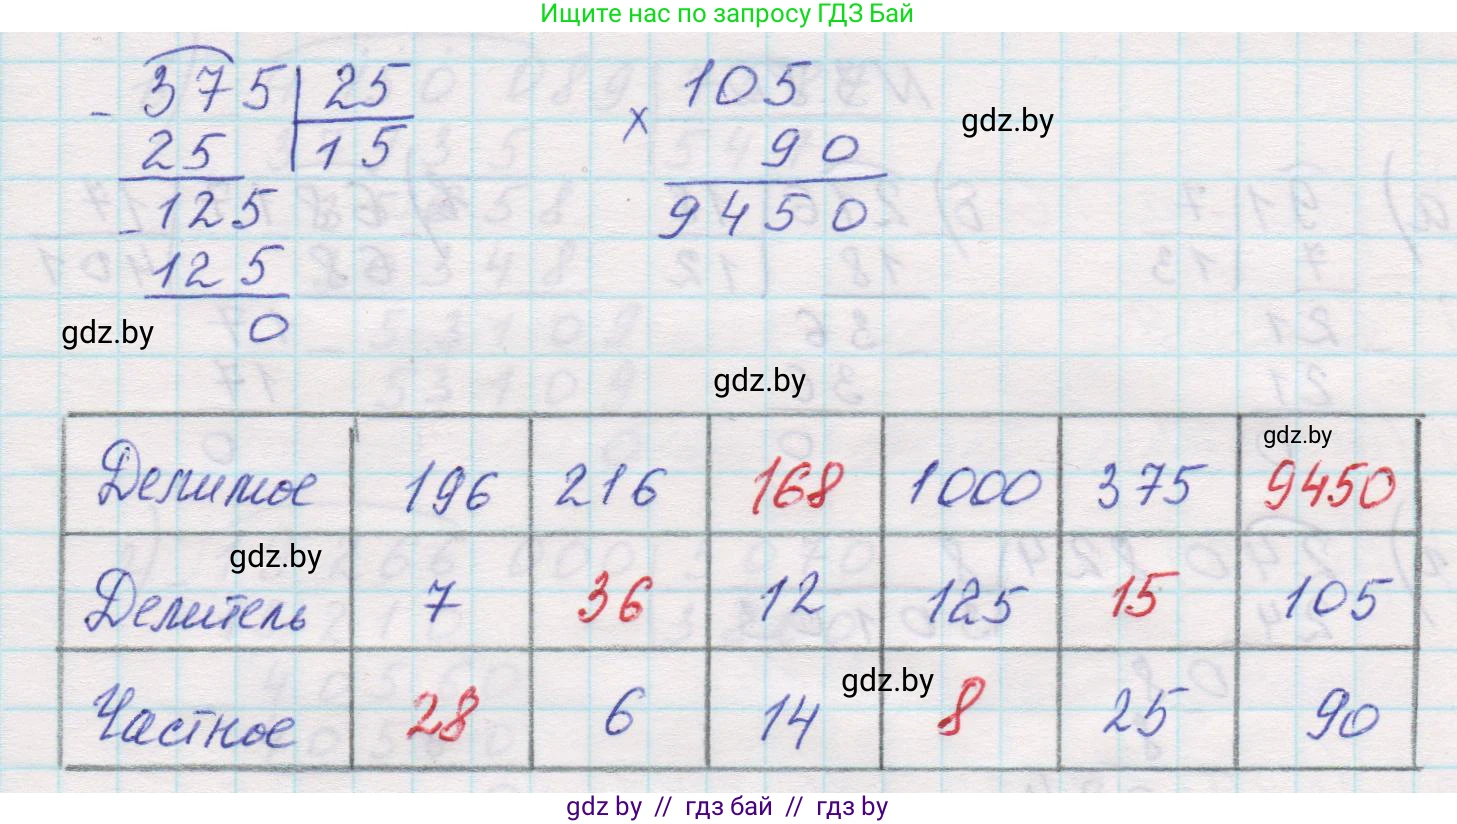 Ищите нас по запросу ГДЗ Бай
375 25
25 15
125
125
0
105
× 90
9450
gdz.by
gdz.by
gdz.by
Делимое 196 216 168 1000 375 9450
gdz.by
gdz.by
Делитель 7 36 12 125 15 105
gdz.by
Частное 28 6 14 8 25 90
gdz by // гдз бай // гдз by